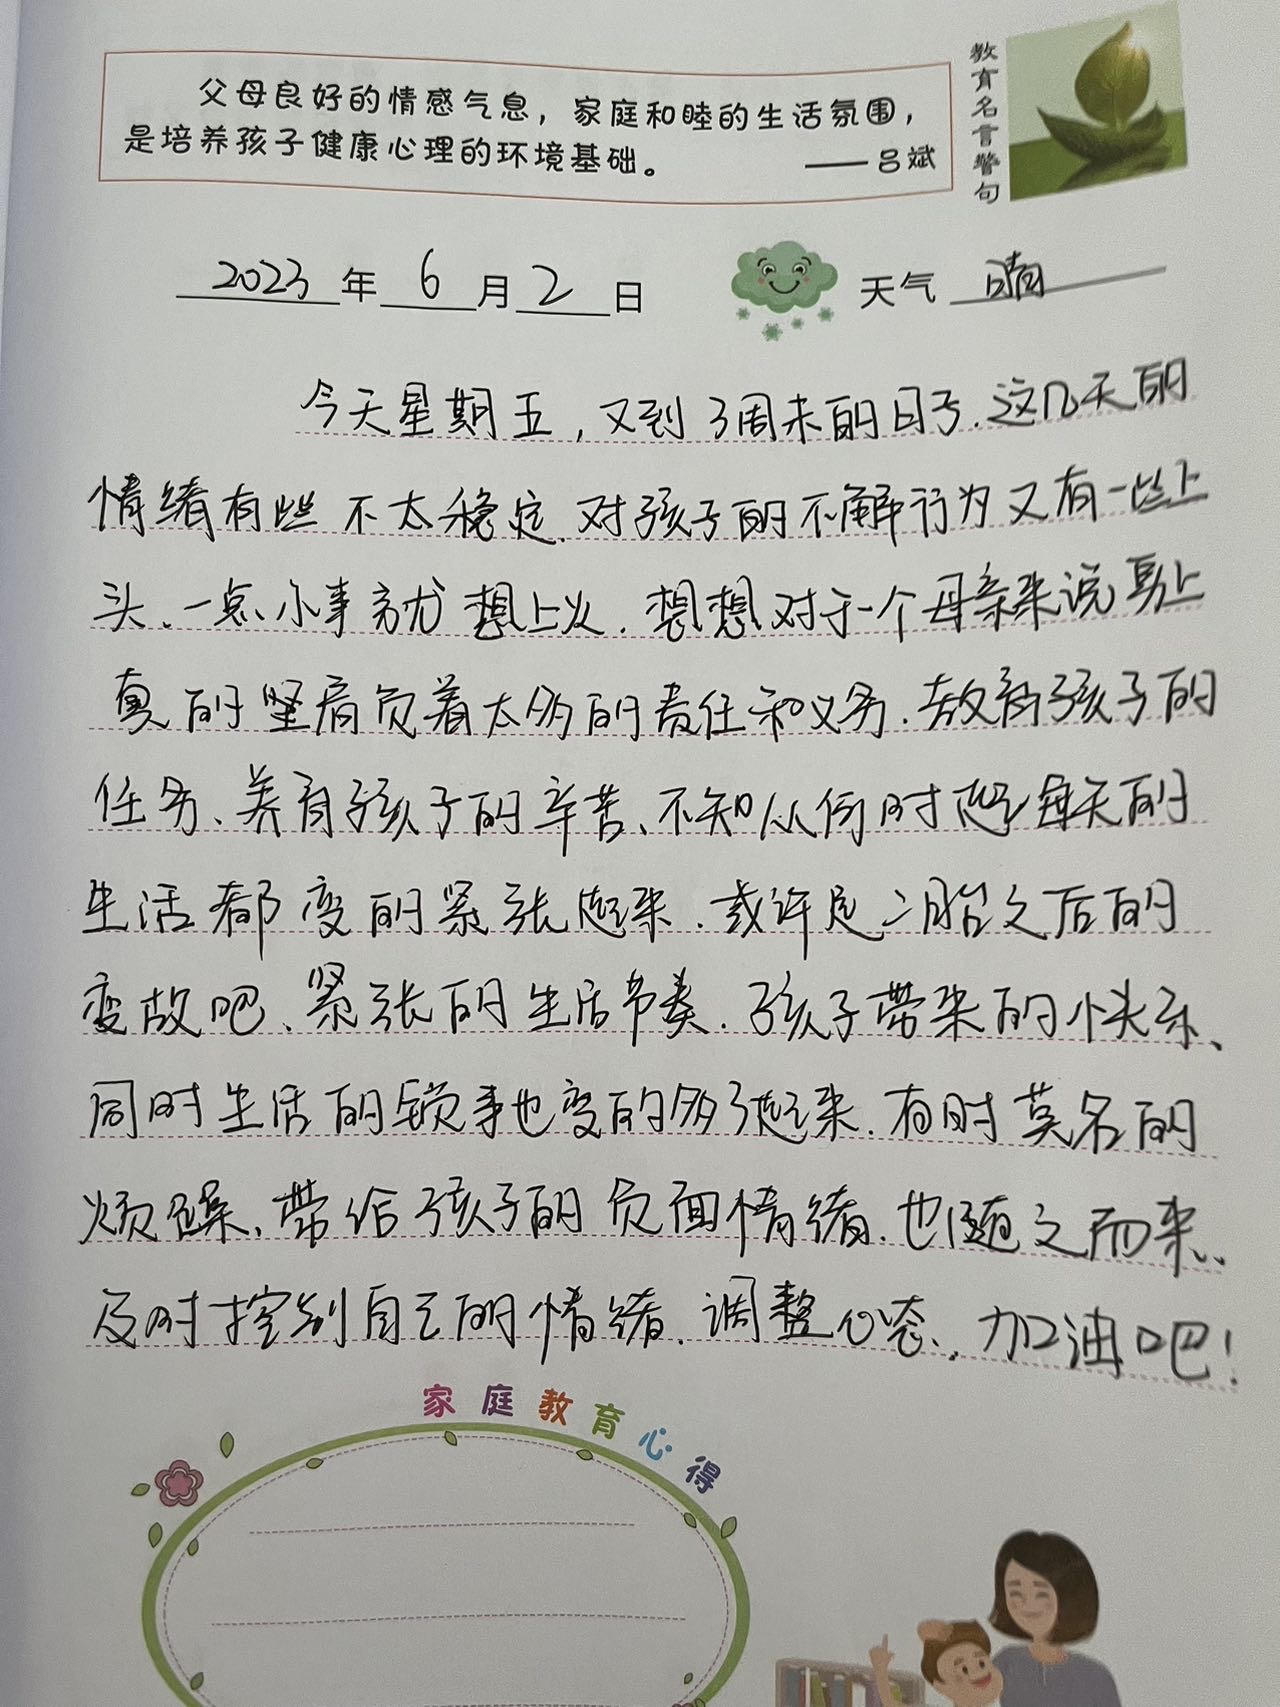 父母良好的情感气息，家庭和睦的生活氛围，
是培养孩子健康心理的环境基础。 ——吕斌
教育名言警句
2023 年 6 月 2 日 天气 晴
今天星期五，又到了周末的日子.这几天的
情绪有些不太稳定.对孩子的不解行为又有一些上
头、一点小事就想上火.想想对于一个母亲来说肩上
真的坚肩负着太多的责任和义务.教育孩子的
任务、养育孩子的辛苦、不知从何时起每天的
生活都变的紧张起来.或许是二胎之后的
变故吧、紧张的生活节奏.孩子带来的快乐、
同时生活的锁事也变的多了起来.有时莫名的
烦躁、带给孩子的负面情绪.也随之而来、
及时控制自己的情绪.调整心态、加油吧！
家庭教育心得